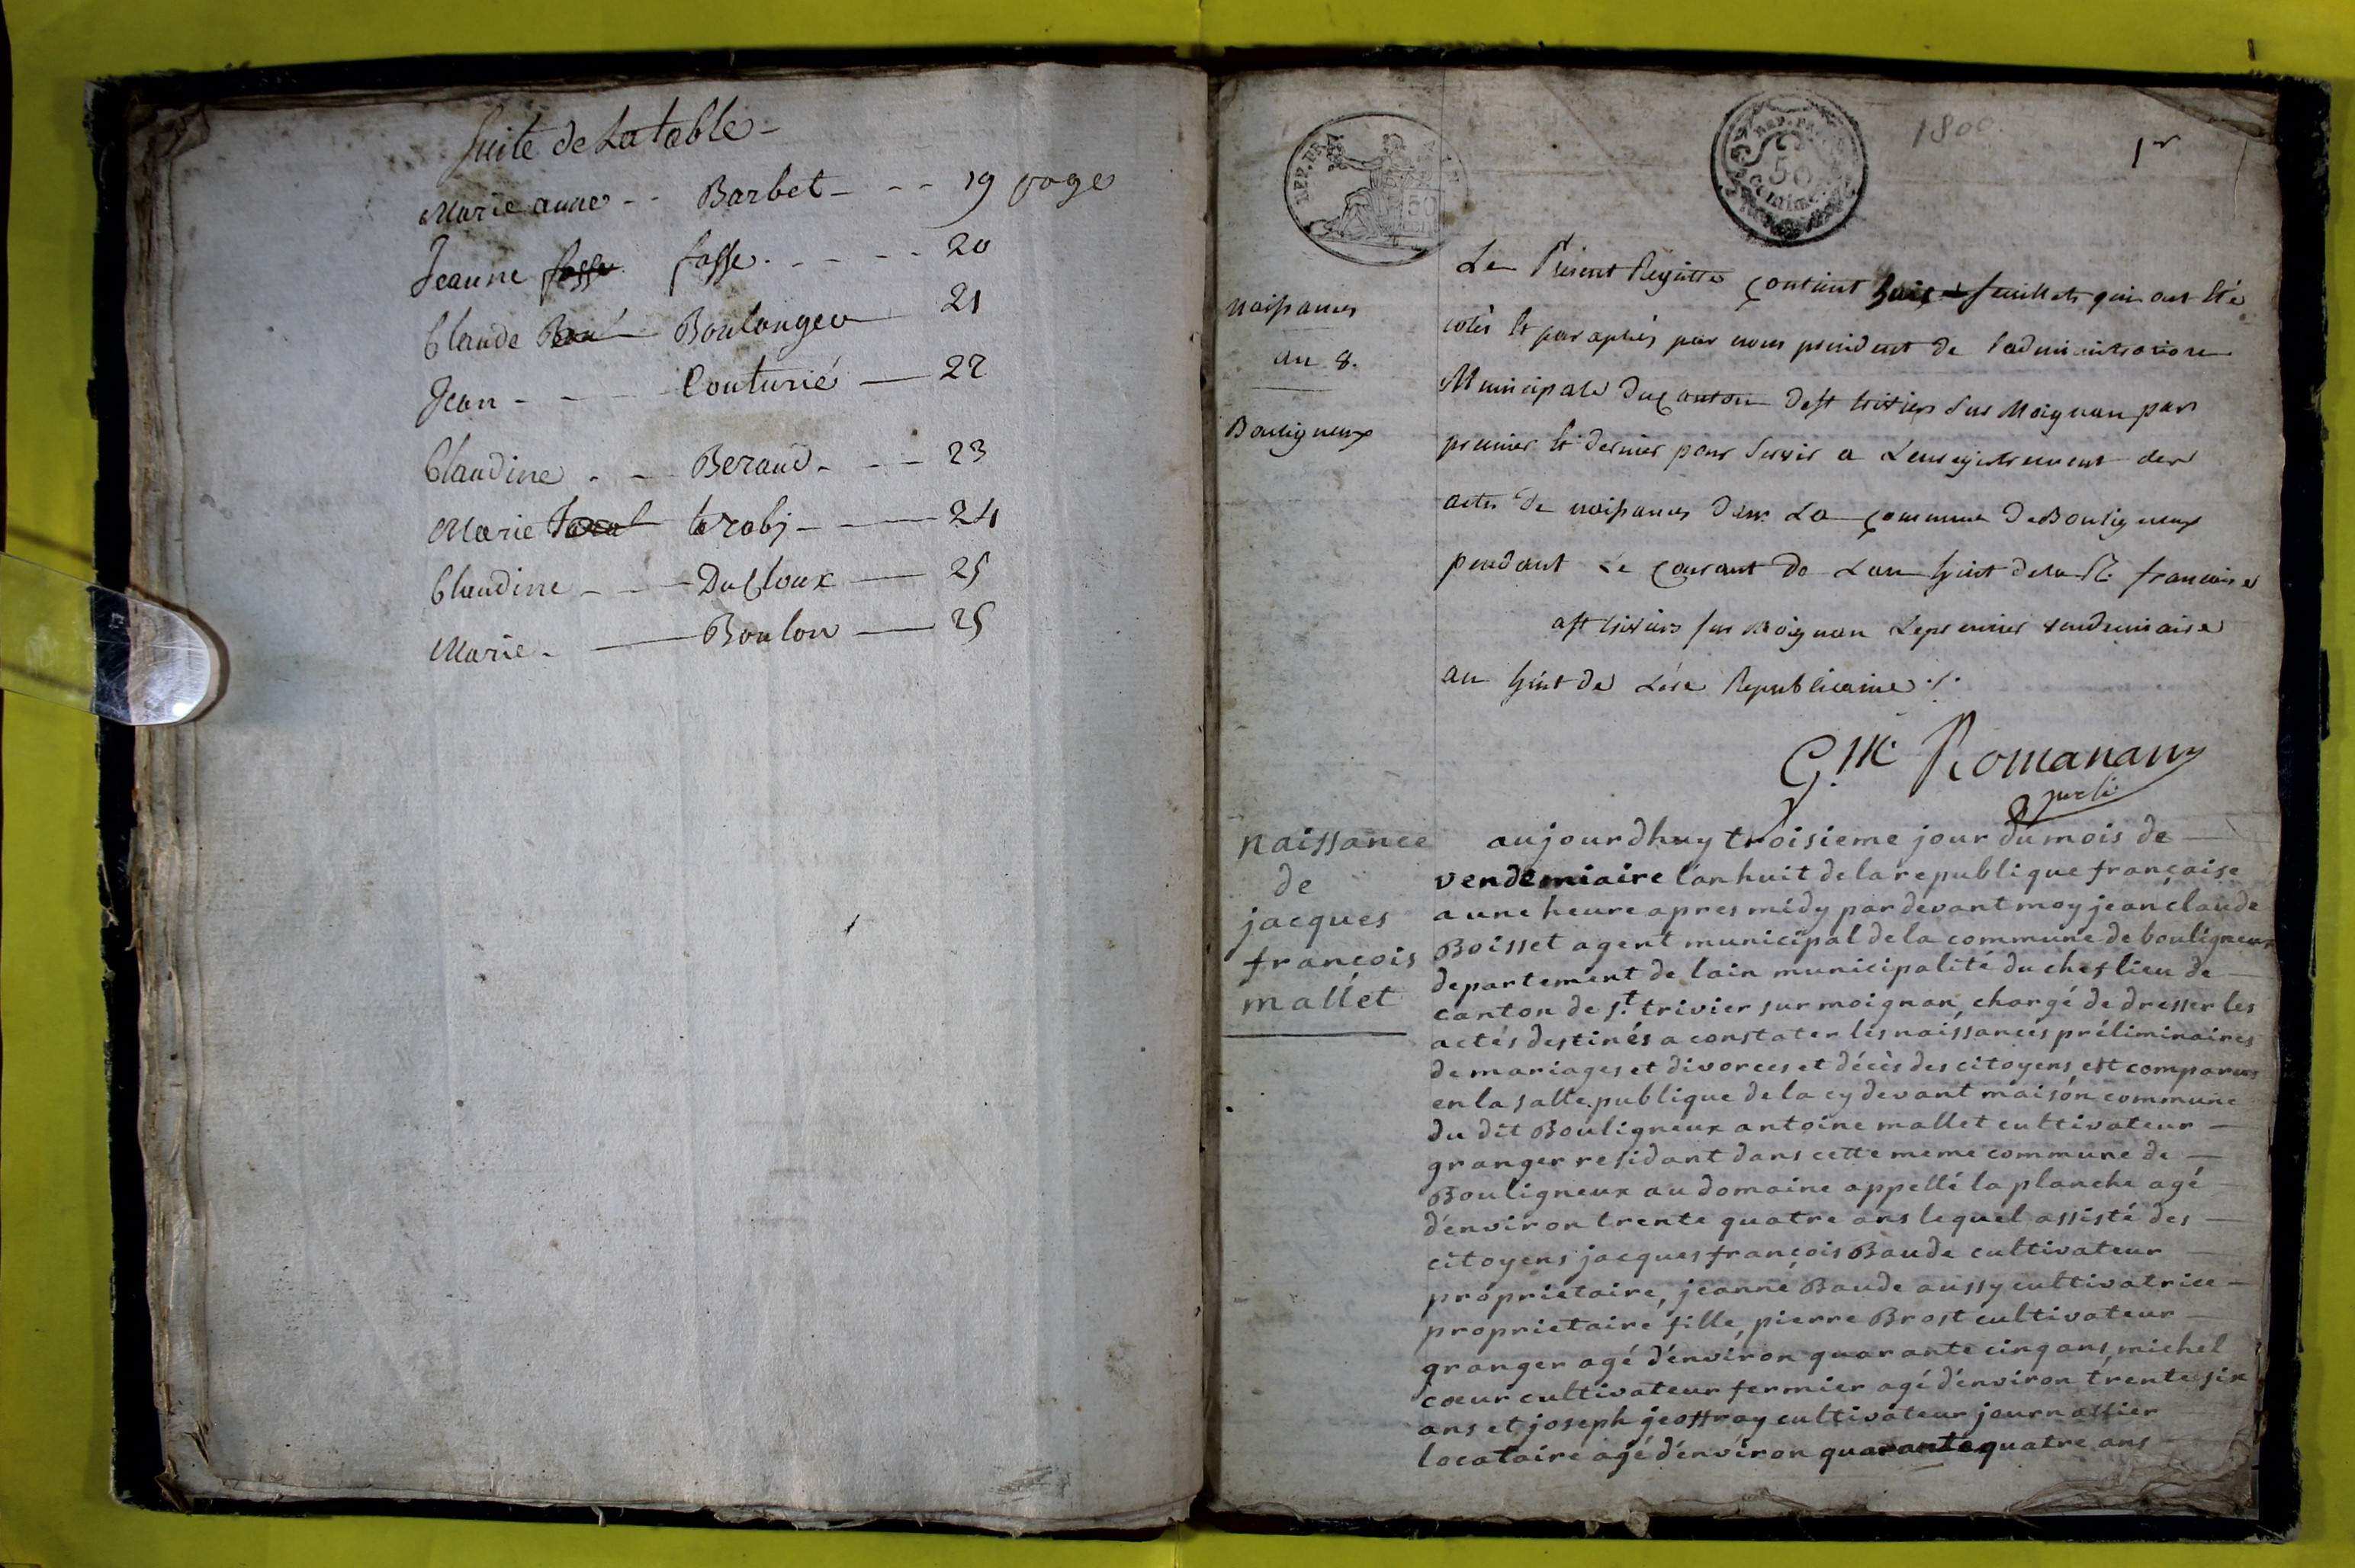 Suite de La table
Marie anne - - Barbet - - - 19 page
Jeanne fosse fosse - - - - 20
Claude Boul Boulanger 21
Jean - - Couturié — 22
Claudine - - Beraud - - - 23
Marie — 24
Claudine - - Du Cloux — 25
Marie - — Boulon — 25
REP. FRA
50
REP. FRA
50
centimes
1800
1r
naissances
an 8.
Bouligneux
Le Présent Registre contient feuillets qui ont été
cotés et paraphés par nous président de l'administration
Municipale du Canton de st trivier sur Moignan par
premier et dernier pour servir a L'enregistrement des
actes de naissances dans La commune de Bouligneux
pendant Le Courant de Lan huit de la R. francaise
a st trivier sur Moignan Le premier vendemiaire
an huit de L'ére Republicaine ./.
G.me Romanans
naissance
de
jacques
françois
mallet
aujourdhuy troisieme jour du mois de —
vendémiaire lan huit de la republique française
a une heure apres midy par devant moy jean claude
Boisset agent municipal de la commune de bouligneux
departement de lain municipalité du chef lieu de —
canton de st. trivier sur moignan, chargé de dresser les
actés destinés a constater lés naissances préliminaires
de mariages et divorces et décès des citoyens, est comparus
en la salle publique de la cy devant maison commune
du dit Bouligneux antoine mallet cultivateur —
granger residant dans cette meme commune de —
Bouligneux au domaine appellé la planche agé
d'environ trente quatre ans lequel assisté des —
citoyens jacques françois Baude cultivateur —
proprietaire, jeanne Baude aussy cultivatrice —
proprietaire fille, pierre Brost cultivateur —
granger agé d'environ quarante cinq ans, michel
cœur cultivateur fermier agé d'environ trente six
ans et joseph jeoffray cultivateur journallier
locataire agé d'environ quarante quatre ans